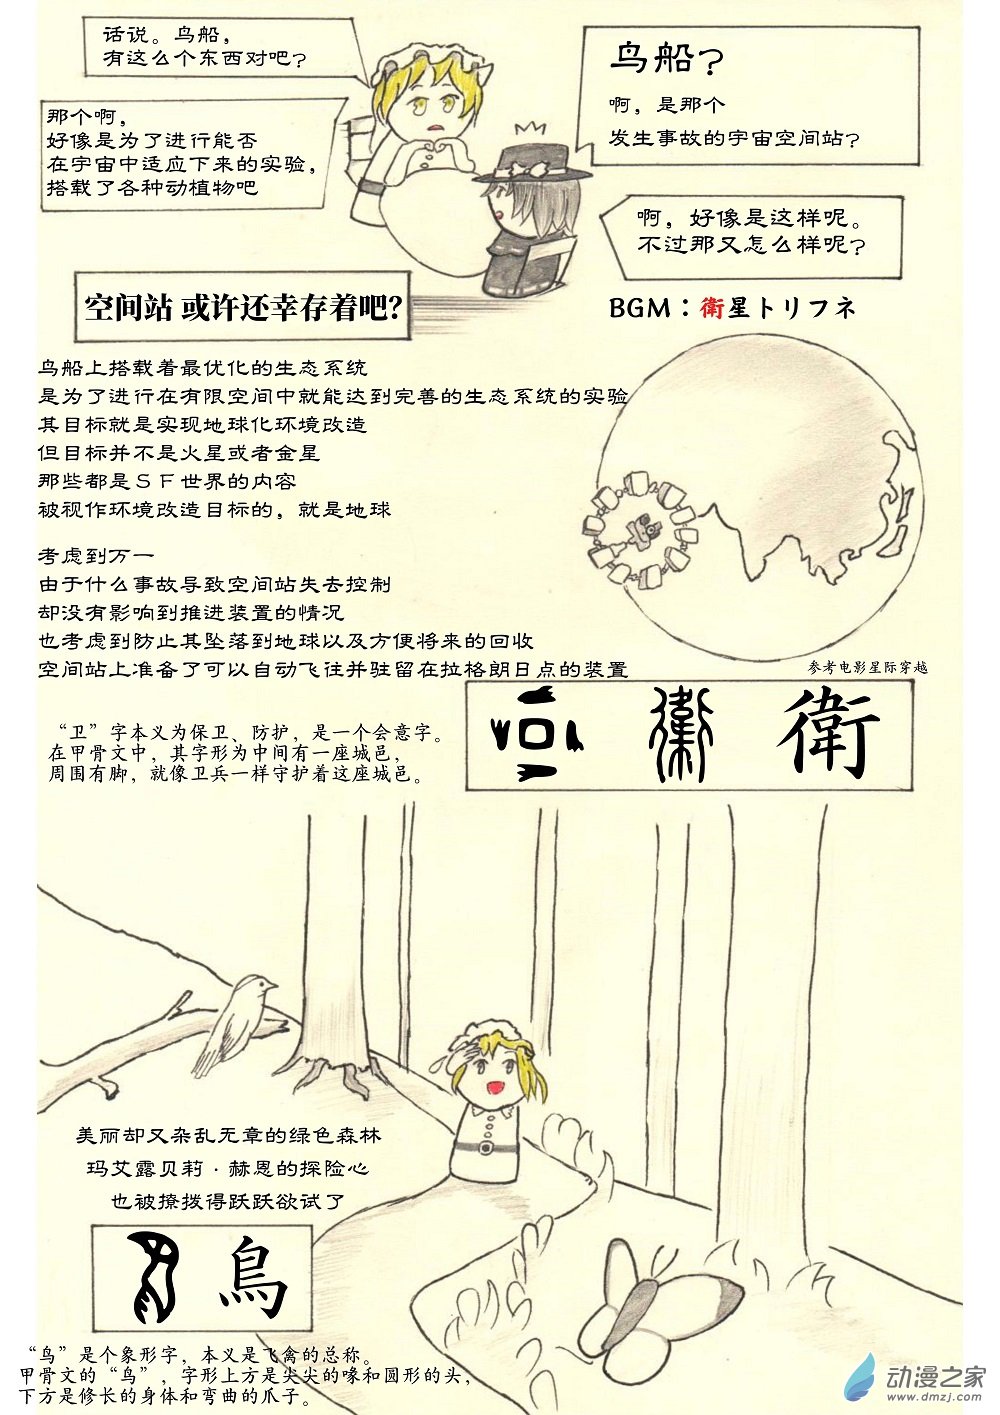 话说。鸟船，
有这么个东西对吧？
鸟船？
啊，是那个
发生事故的宇宙空间站？
那个啊，
好像是为了进行能否
在宇宙中适应下来的实验，
搭载了各种动植物吧
啊，好像是这样呢。
不过那又怎么样呢？
空间站 或许还幸存着吧？
BGM：衛星トリフネ
鸟船上搭载着最优化的生态系统
是为了进行在有限空间中就能达到完善的生态系统的实验
其目标就是实现地球化环境改造
但目标并不是火星或者金星
那些都是ＳＦ世界的内容
被视作环境改造目标的，就是地球
考虑到万一
由于什么事故导致空间站失去控制
却没有影响到推进装置的情况
也考虑到防止其坠落到地球以及方便将来的回收
空间站上准备了可以自动飞往并驻留在拉格朗日点的装置
参考电影星际穿越
“卫”字本义为保卫、防护，是一个会意字。
在甲骨文中，其字形为中间有一座城邑，
周围有脚，就像卫兵一样守护着这座城邑。
衛
美丽却又杂乱无章的绿色森林
玛艾露贝莉·赫恩的探险心
也被撩拨得跃跃欲试了
鳥
“鸟”是个象形字，本义是飞禽的总称。
甲骨文的“鸟”，字形上方是尖尖的喙和圆形的头，
下方是修长的身体和弯曲的爪子。
动漫之家
www.dmzj.com